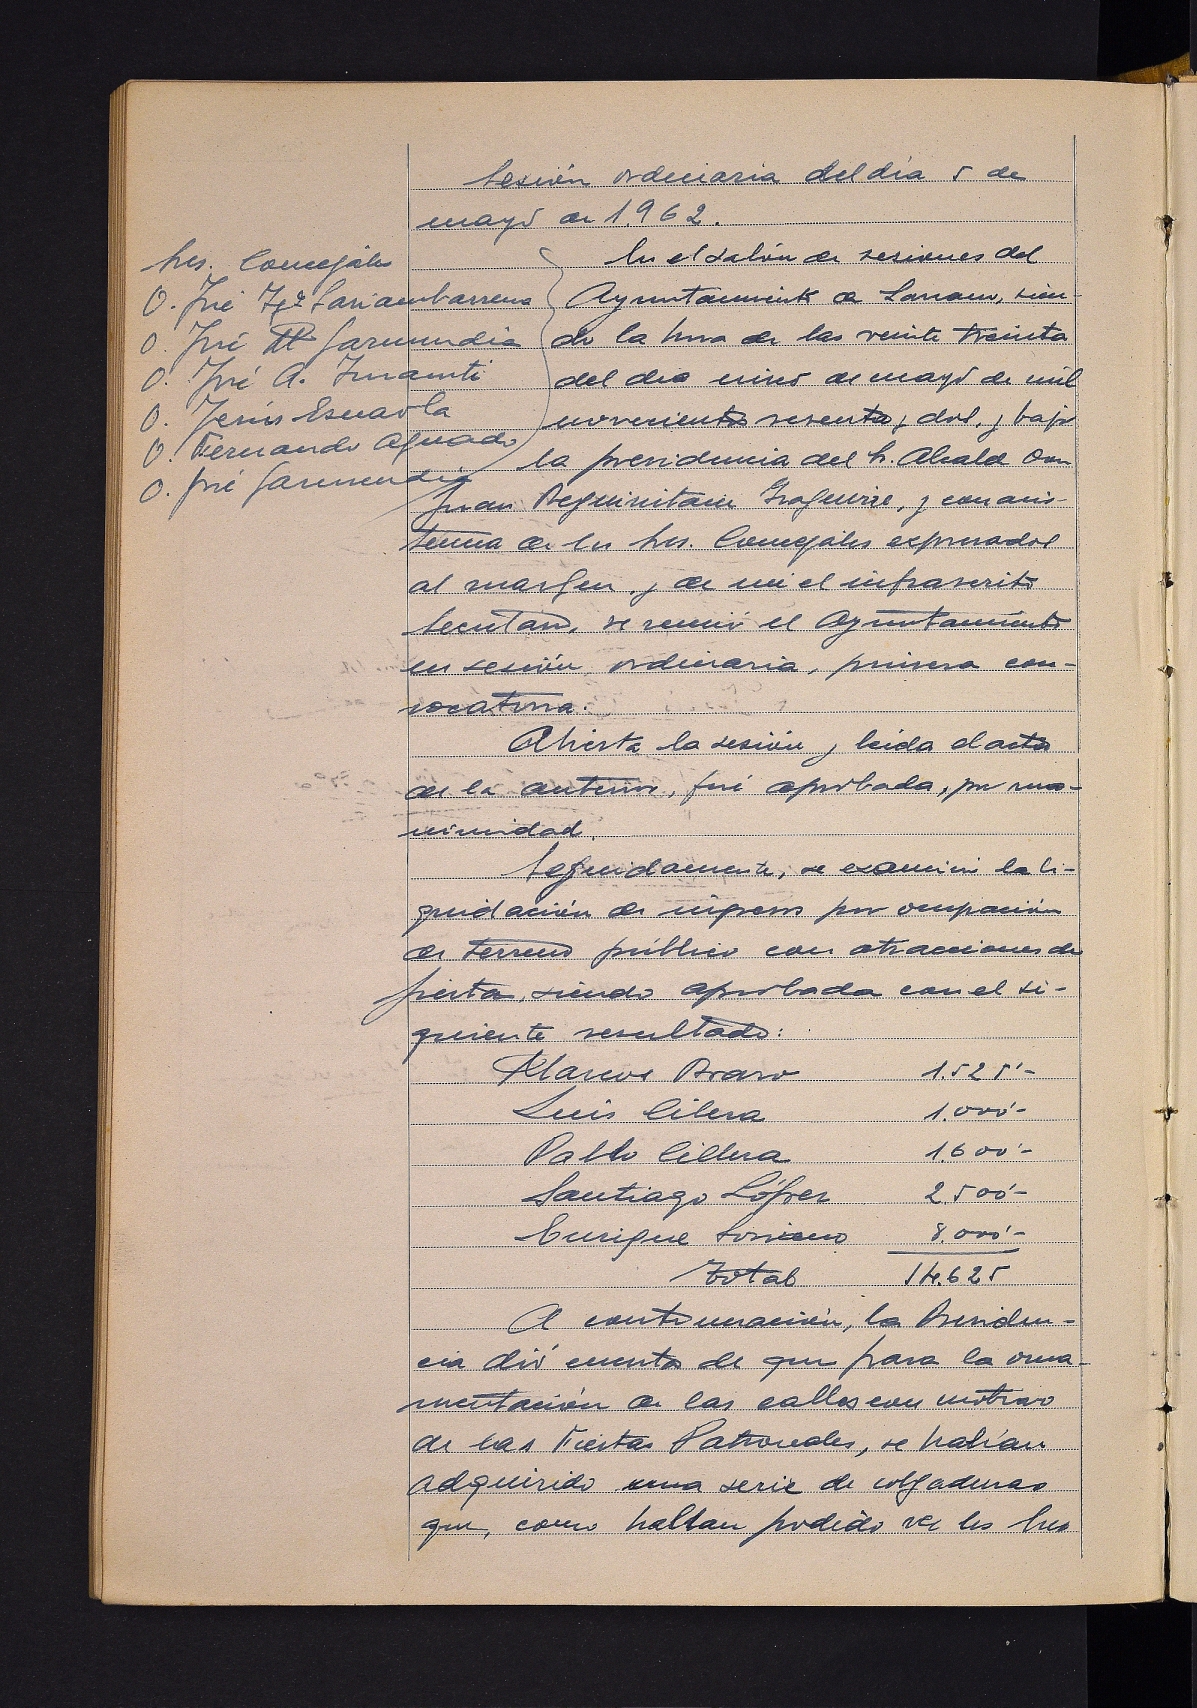 Sesión ordinaria del día 5 de
mayo de 1.962.
Sres. Concejales
D. José Igº Sariambarrena
D. José Mª Garmendia
D. José A.
D. Jesús Esnaola
D. Fernando Aguado
D. José Garmendia
En el salón de sesiones del
Ayuntamiento de, sien-
do la hora de las veinte treinta
del día cinco de mayo de mil
novecientos sesenta y dos, y bajo
la presidencia del Sr. Alcalde Don
Juan Beguiristain, y con asis-
tencia de los Sres. Concejales expresados
al margen, y de mi el infrascrito
Secretario, se reunió el Ayuntamiento
en sesión ordinaria, primera con-
vocatoria.
Abierta la sesión y leida el acta
de la anterior, fué aprobada, por una-
nimidad.
Seguidamente, se examinó la li-
quidación de ingresos por ocupación
de terreno público con atracciones de
fiesta, siendo aprobada con el si-
guiente resultado:
Marcos Bravo 1.525'-
Luis Cillera 1.000'-
Pablo Cillera 1.600'-
Santiago López 2.500'-
Enrique Soriano 8.000'-
Total 14.625
A continuación, la Presiden-
cia dió cuenta de que para la orna-
mentación de las calles con motivo
de las Fiestas Patronales, se habían
adquirido una serie de colgaduras
que, como habían podido ver los Sres